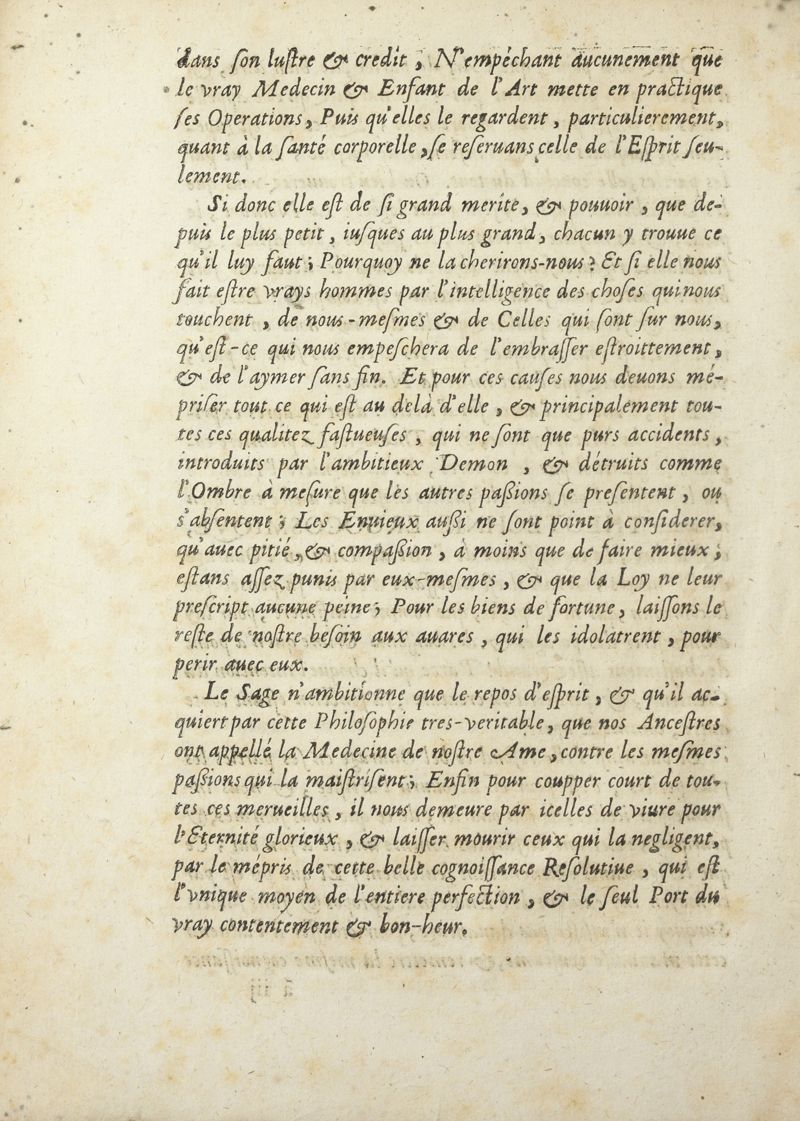 dans ſon luſtre & credit, N'empéchant aucunement que
le vray Medecin & Enfant de l'Art mette en practique
ſes Operations, Puis qu'elles le regardent, particulierement,
quant à la ſanté corporelle, ſe reſeruans celle de l'Eſprit ſeu-
lement.
Si donc elle eſt de ſi grand merite, & pouuoir, que de-
puis le plus petit, iuſques au plus grand, chacun y trouue ce
qu'il luy faut; Pourquoy ne la cherirons-nous? Et ſi elle nous
fait eſtre vrays hommes par l'intelligence des choſes qui nous
touchent, de nous-meſmes & de Celles qui ſont ſur nous,
qu'eſt-ce qui nous empeſchera de l'embraſſer eſtroittement,
& de l'aymer ſans fin. Et pour ces cauſes nous deuons mé-
priſer tout ce qui eſt au delà d'elle, & principalement tou-
tes ces qualitez faſtueuſes, qui ne ſont que purs accidents,
introduits par l'ambitieux Demon, & détruits comme
l'Ombre à meſure que les autres paſſions ſe preſentent, ou
s'abſentent; Les Enuieux auſſi ne ſont point à conſiderer,
qu'auec pitié, & compaſſion, à moins que de faire mieux;
eſtans aſſez punis par eux-meſmes, & que la Loy ne leur
preſcript aucune peine; Pour les biens de fortune, laiſſons le
reſte de noſtre beſoin aux auares, qui les idolatrent, pour
perir auec eux.
Le Sage n'ambitionne que le repos d'eſprit, & qu'il ac-
quiert par cette Philoſophie tres-veritable, que nos Anceſtres
ont appellé la Medecine de noſtre Ame, contre les meſmes
paſſions qui la maiſtriſent; Enfin pour coupper court de tou-
tes ces merueilles, il nous demeure par icelles de viure pour
l'Eternité glorieux, & laiſſer mourir ceux qui la negligent,
par le mépris de cette belle cognoiſſance Reſolutiue, qui eſt
l'vnique moyen de l'entiere perfection, & le ſeul Port du
vray contentement & bon-heur.
ã iij